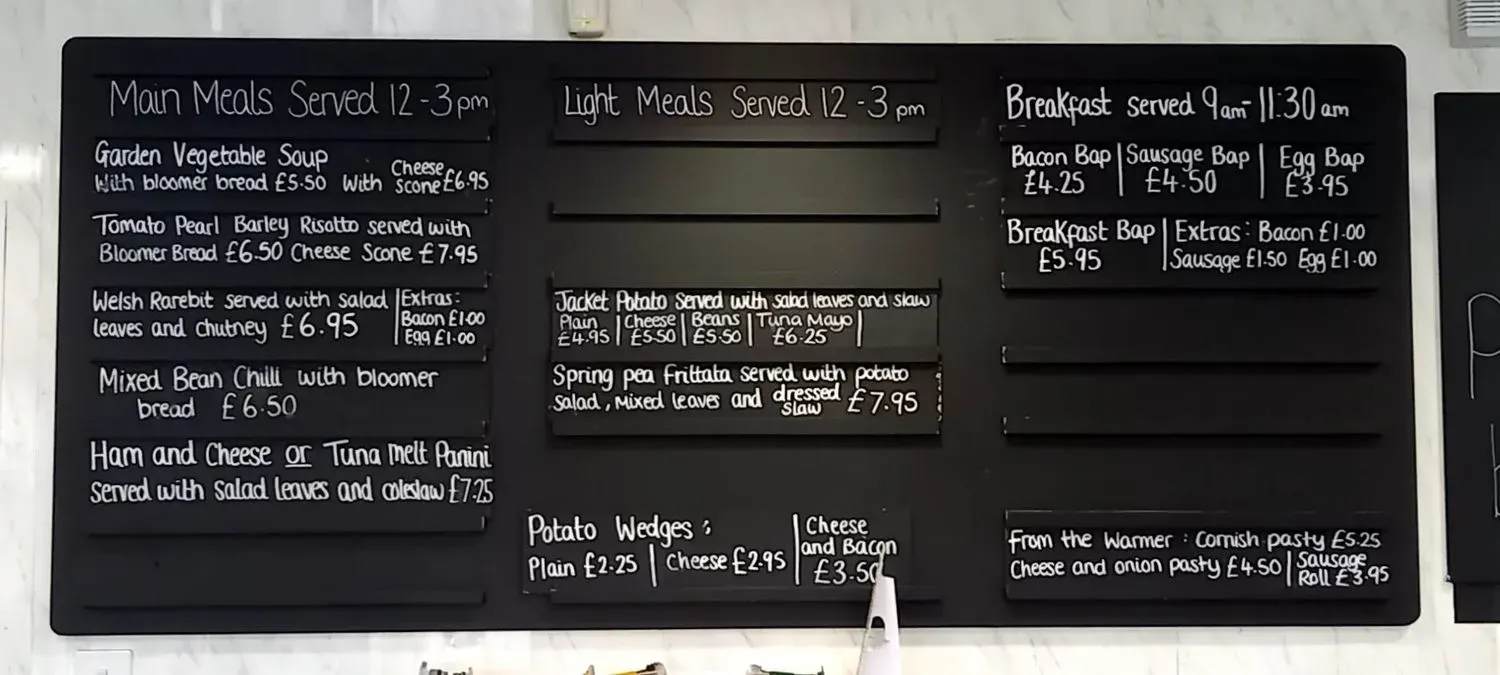 Main Meals Served 12-3pm
Garden Vegetable Soup
With bloomer bread £5.50 With Cheese scone £6.95
Tomato Pearl Barley Risotto served with
Bloomer Bread £6.50 Cheese Scone £7.95
Welsh Rarebit served with salad
leaves and chutney £6.95
Extras:
Bacon £1.00
Egg £1.00
Mixed Bean Chilli with bloomer
bread £6.50
Ham and Cheese or Tuna Melt Panini
Served with Salad leaves and coleslaw £7.25
Light Meals Served 12-3pm
Jacket Potato served with salad leaves and slaw
Plain | Cheese | Beans | Tuna Mayo |
£4.95 | £5.50 | £5.50 | £6.25
Spring pea frittata served with potato
salad, Mixed leaves and dressed slaw £7.95
Potato Wedges:
Plain £2.25 | Cheese £2.95
Cheese
and Bacon
£3.50
Breakfast served 9am-11:30am
Bacon Bap | Sausage Bap | Egg Bap
£4.25 | £4.50 | £3.95
Breakfast Bap
£5.95
Extras: Bacon £1.00
Sausage £1.50 Egg £1.00
From the Warmer: Cornish pasty £5.25
Cheese and onion pasty £4.50 | Sausage Roll £3.95